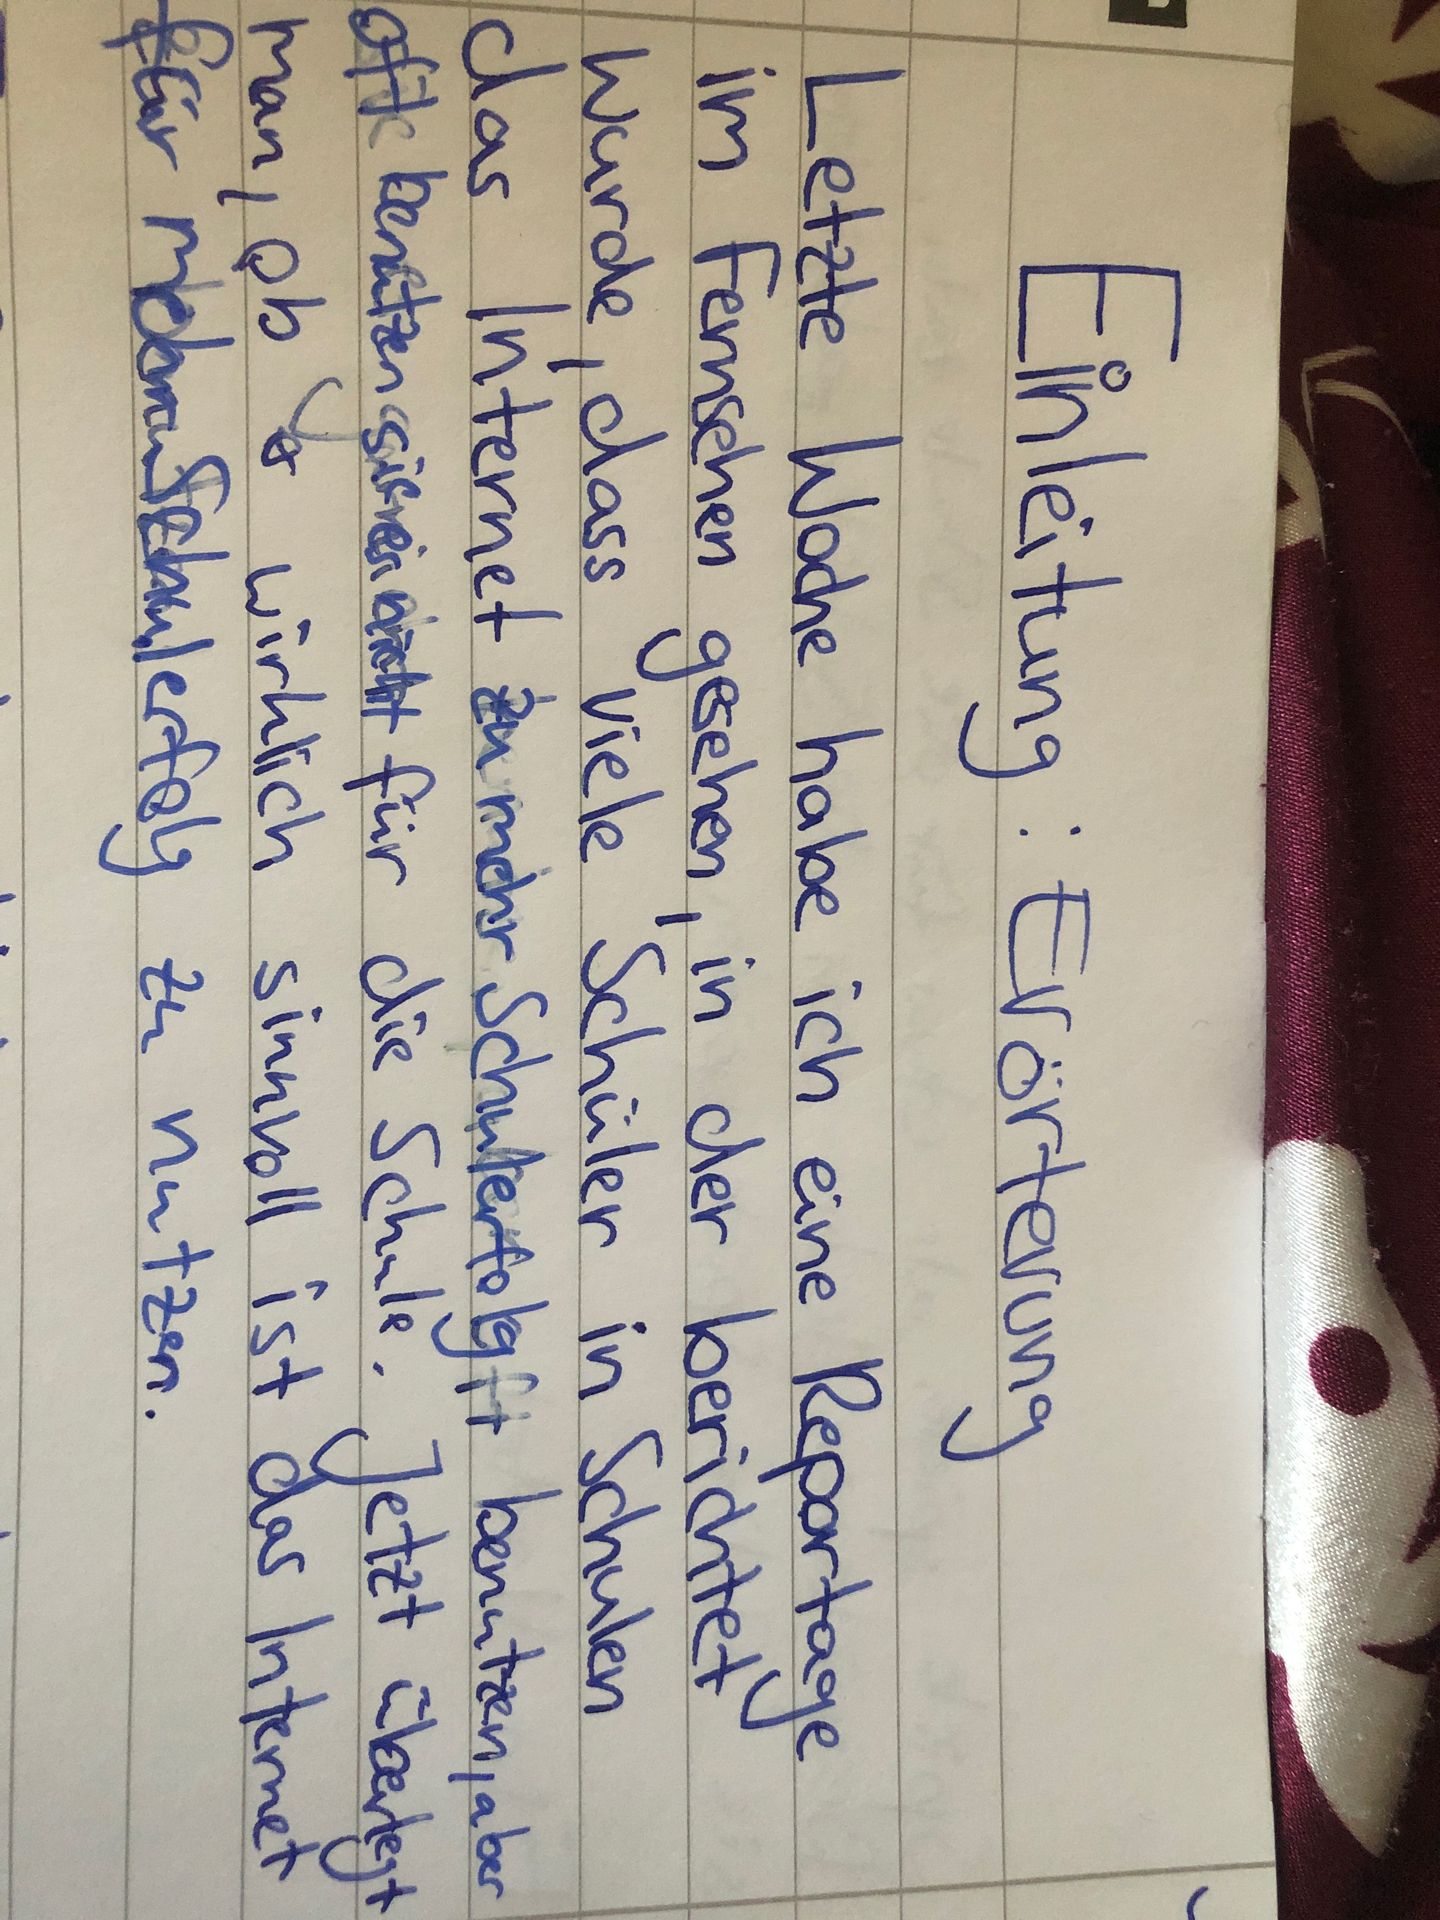 Einleitung: Erörterung
Letzte Woche habe ich eine Reportage
im Fernsehen gesehen, in der berichtet
wurde, dass viele Schüler in Schulen
das Internet zu mehr Schulerfolg benutzen, aber
oft benutzen sie nicht für die Schule. Jetzt überlegt
man, ob wirklich sinnvoll ist das Internet
für mehr Schulerfolg zu nutzen.